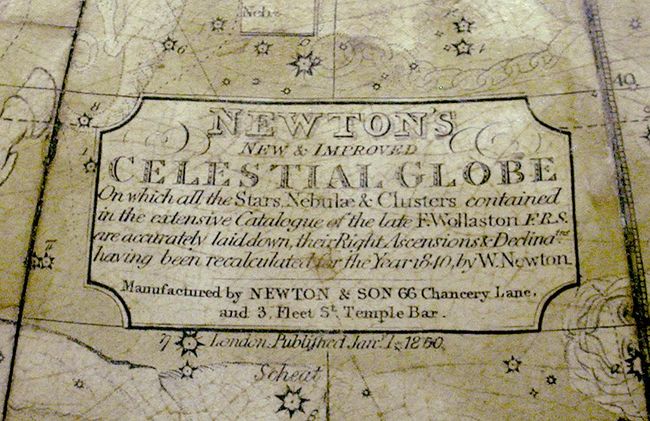 Neb:
6
4
40
8
NEWTON'S
NEW & IMPROVED
CELESTIAL GLOBE
On which all the Stars, Nebulæ & Clusters contained
in the extensive Catalogue of the late F. Wollaston F.R.S.
are accurately laid down, their Right Ascensions & Declinatns.
having been recalculated for the Year 1840, by W. Newton.
7
Manufactured by NEWTON & SON 66 Chancery Lane,
and 3, Fleet St. Temple Bar.
7
London, Published Jany. 1, 1860.
Scheat